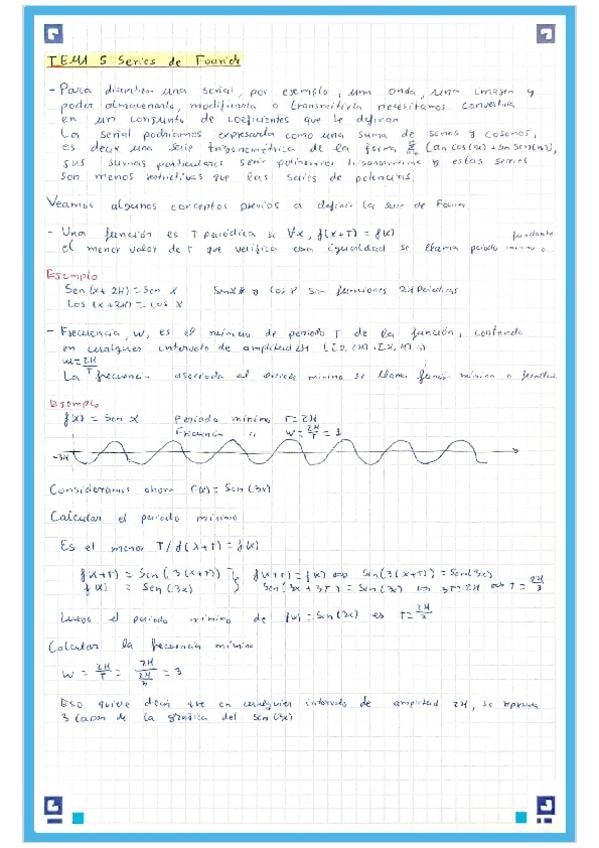 TEMA 5 Series de Fourier
- Para discretizar una señal, por ejemplo, una onda, una imagen y
poder almacenarla, modificarla o transmitirla necesitamos convertirla
en un conjunto de coeficientes que la definan
La señal podríamos expresarla como una suma de senos y cosenos,
es decir una serie trigonométrica de la forma (an cos(nx) + bn sen(nx)),
sus sumas particulares serie polinomios trigonométricos y estas series
son menos restrictivas que las series de potencias.
Veamos algunos conceptos previos a definir la serie de Fourier
- Una función es T periódica si ∀x, f(x+T) = f(x)
el menor valor de T que verifica esa igualdad se llama periodo mínimo o
Ejemplo
Sen(x + 2π) = Sen x Sen x y cos x son funciones 2π Periodicas
Cos(x+2π) = cos x
- Frecuencia, w, es el número de periodo T de la función, contenida
en cualquier intervalo de amplitud 2π
w = 2π/T
La frecuencia asociada al periodo mínimo se llama mínima o
Ejemplo
f(x) = Sen x Periodo mínimo T = 2π
Frecuencia " w = 2π/T = 1
Consideramos ahora f(x) = Sen(3x)
Calcular el periodo mínimo
Es el menor T / f(x+T) = f(x)
f(x+T) = Sen(3(x+T)) } f(x+T) = f(x) ⇔ Sen(3(x+T)) = Sen(3x)
f(x) = Sen(3x) } Sen(3x + 3T) = Sen(3x) ⇔ 3T = 2π ⇔ T = 2π/3
Luego el periodo mínimo de f(x) = Sen(3x) es T = 2π/3
Calcular la frecuencia mínima
w = 2π/T = 2π/(2π/3) = 3
Eso quiere decir que en cualquier intervalo de amplitud 2π, se
3 de la gráfica del sen(3x)